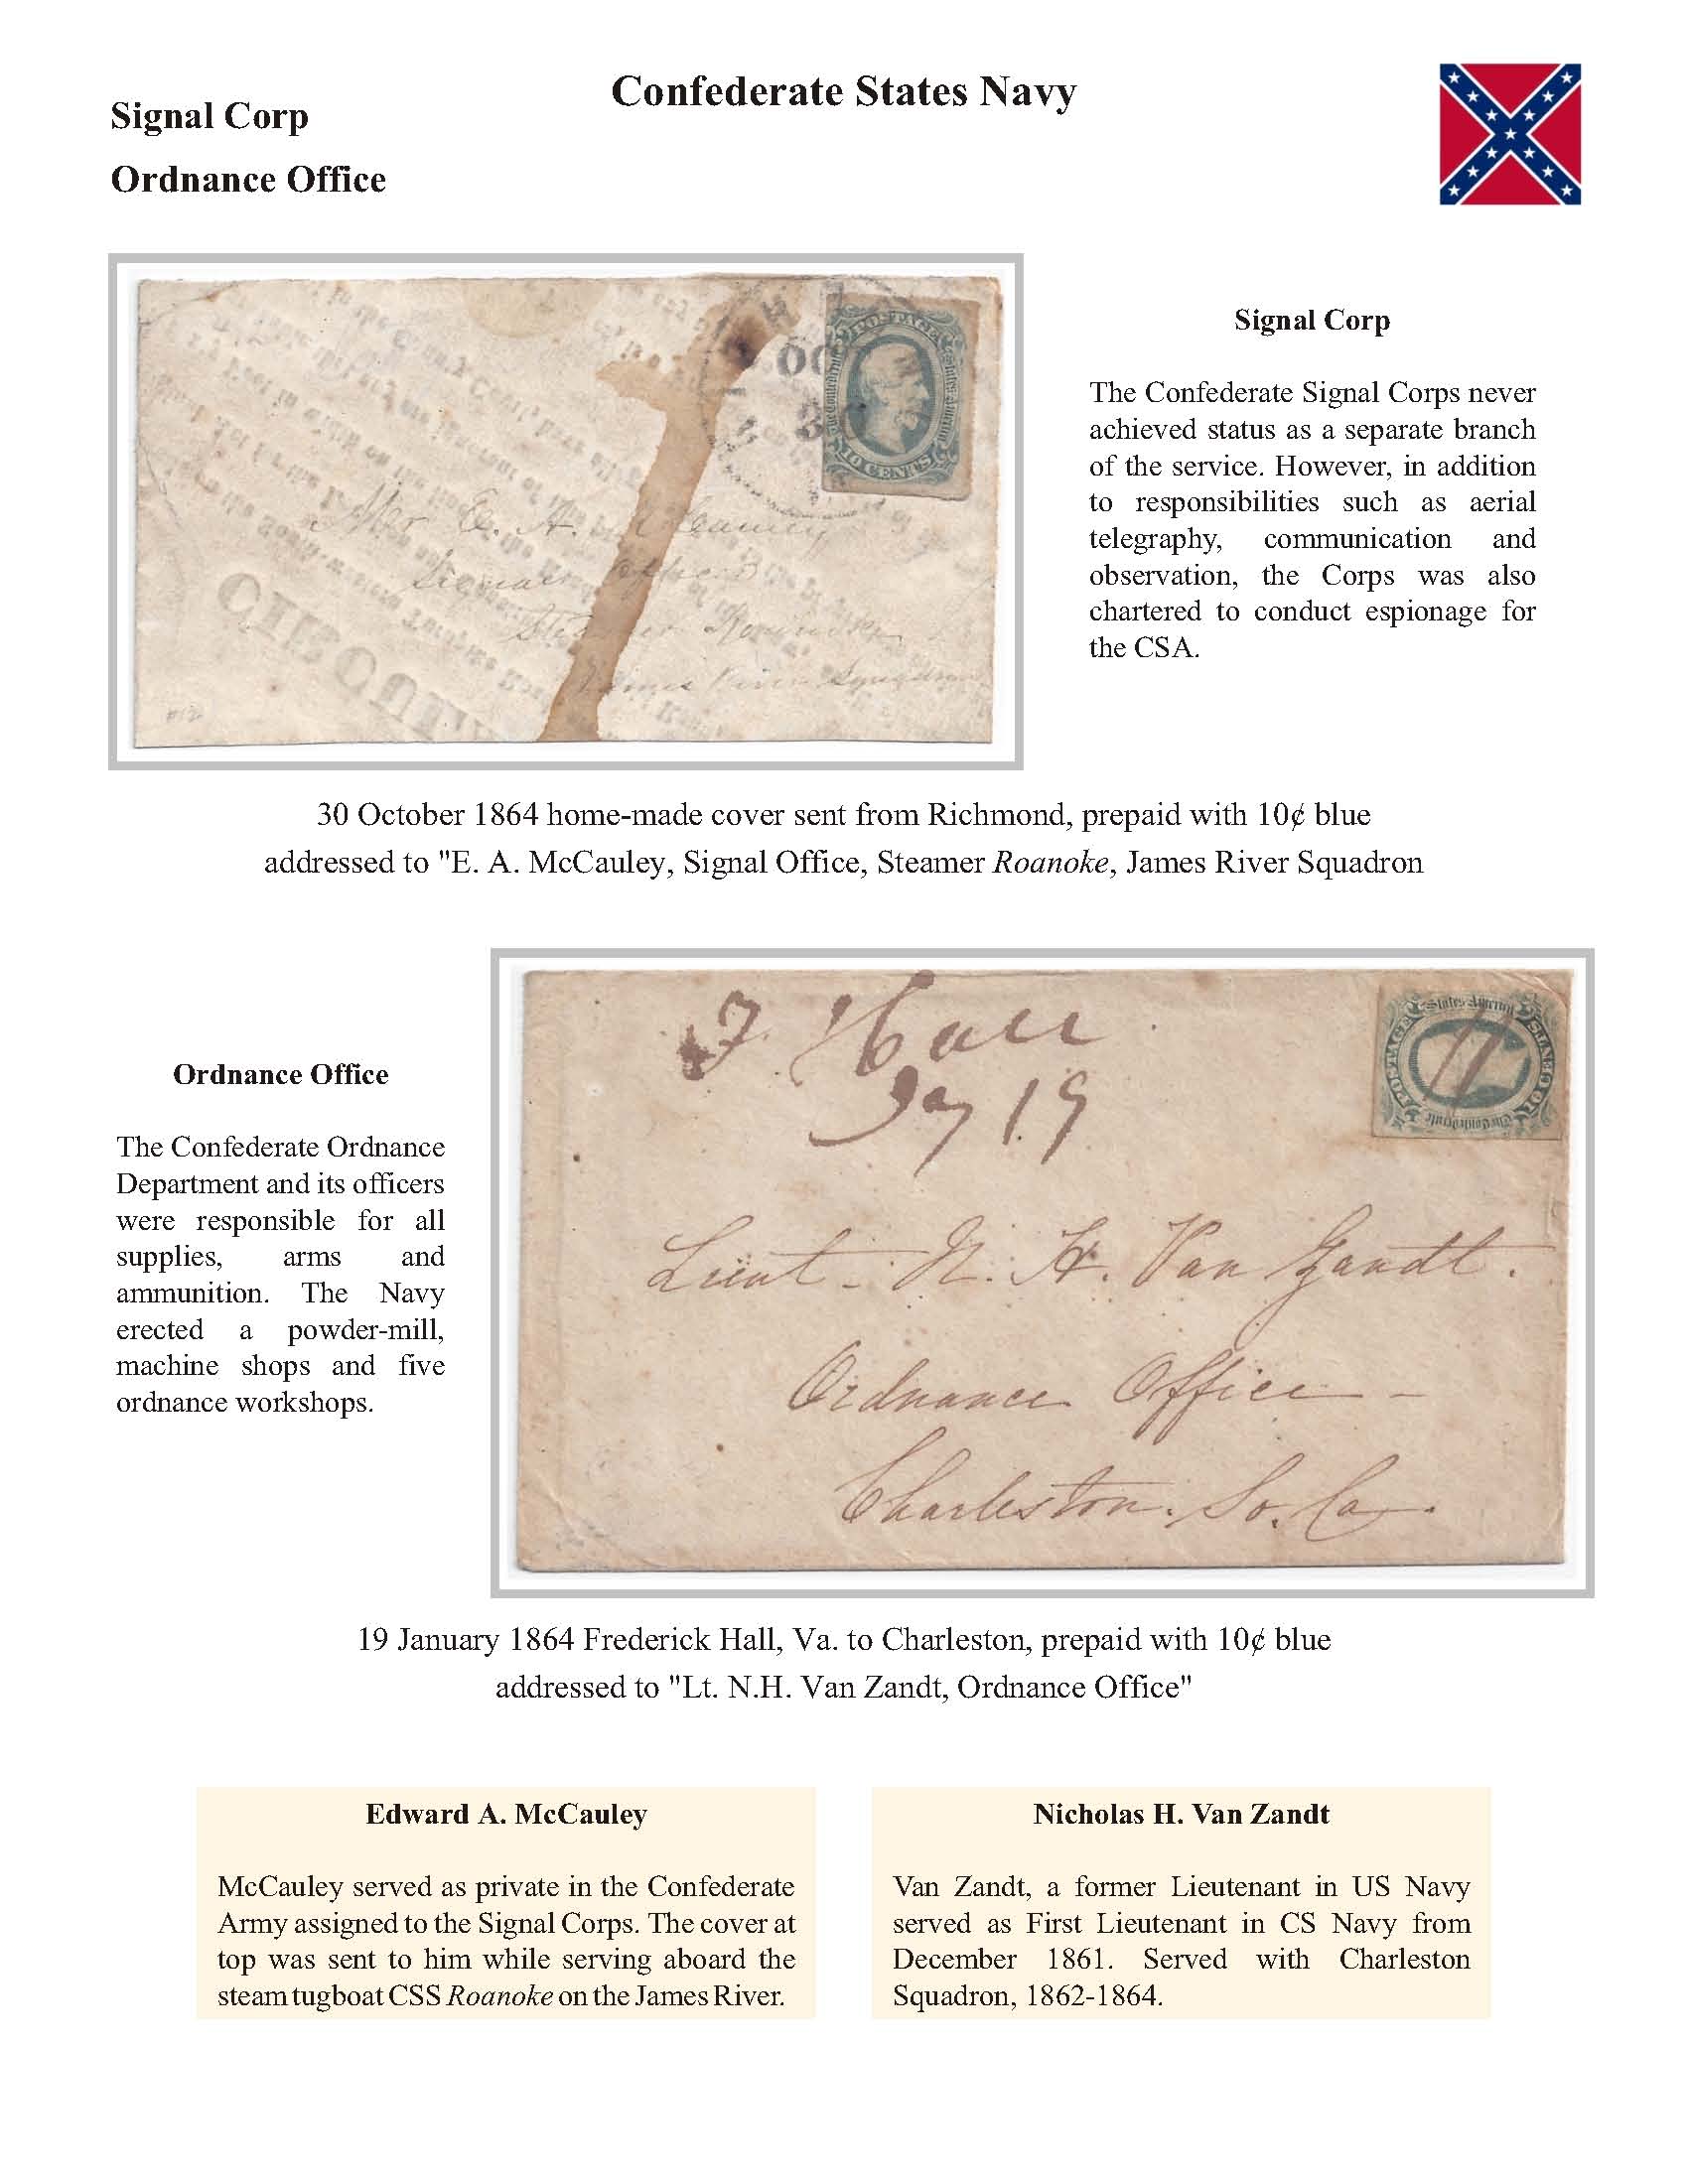 Confederate States Navy
Signal Corp
Ordnance Office
POSTAGE
The Confederate States America
10 CENTS
OC
30
Mr E. A. McCauley
Signal Office
Steamer Roanoke
James River Squadron
Signal Corp
The Confederate Signal Corps never
achieved status as a separate branch
of the service. However, in addition
to responsibilities such as aerial
telegraphy, communication and
observation, the Corps was also
chartered to conduct espionage for
the CSA.
30 October 1864 home-made cover sent from Richmond, prepaid with 10¢ blue
addressed to "E. A. McCauley, Signal Office, Steamer Roanoke, James River Squadron
Ordnance Office
The Confederate Ordnance
Department and its officers
were responsible for all
supplies, arms and
ammunition. The Navy
erected a powder-mill,
machine shops and five
ordnance workshops.
F. Hall
Jay 19
POSTAGE
The Confederate States America
10 CENTS
Lieut - N. H. Van Zandt.
Ordnance Office -
Charleston. So. Ca.
19 January 1864 Frederick Hall, Va. to Charleston, prepaid with 10¢ blue
addressed to "Lt. N.H. Van Zandt, Ordnance Office"
Edward A. McCauley
McCauley served as private in the Confederate
Army assigned to the Signal Corps. The cover at
top was sent to him while serving aboard the
steam tugboat CSS Roanoke on the James River.
Nicholas H. Van Zandt
Van Zandt, a former Lieutenant in US Navy
served as First Lieutenant in CS Navy from
December 1861. Served with Charleston
Squadron, 1862-1864.